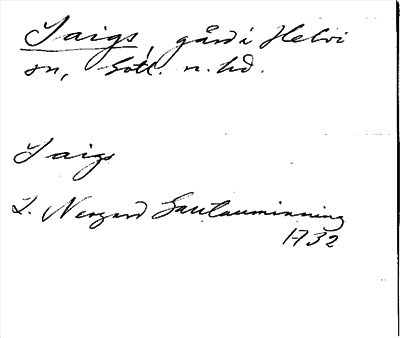 Saigs, gård i Helvi
sn, Gotl. n. hd.
Saigs
L. Nergard Gautauminning
1732